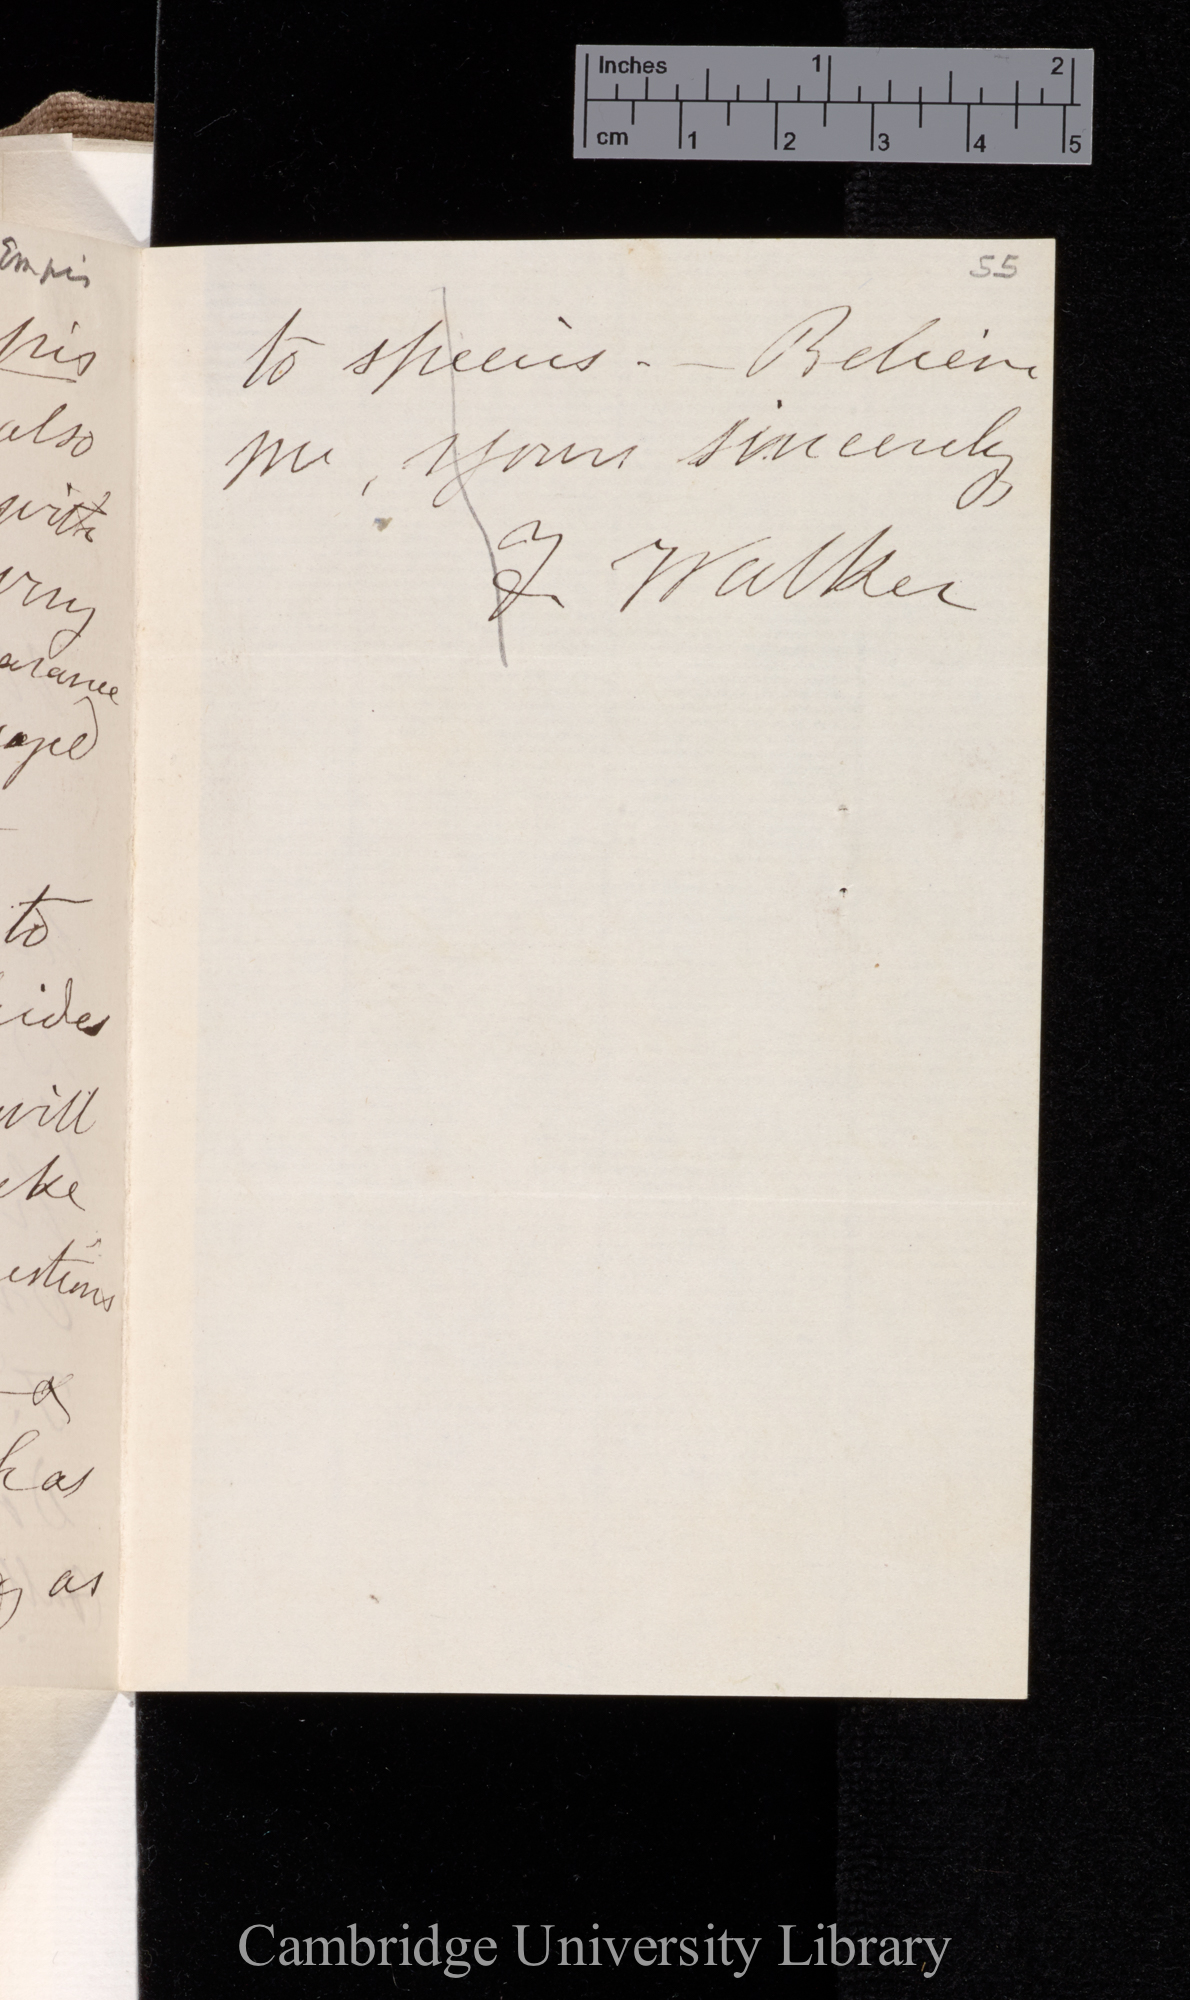 Inches 1 2
cm 1 2 3 4 5
Empis
pis
also
with
arance
aped
to
ides
will
ke
estions
&
has
as
55
to species. — Believe
me, yours sincerely
F Walker
Cambridge University Library